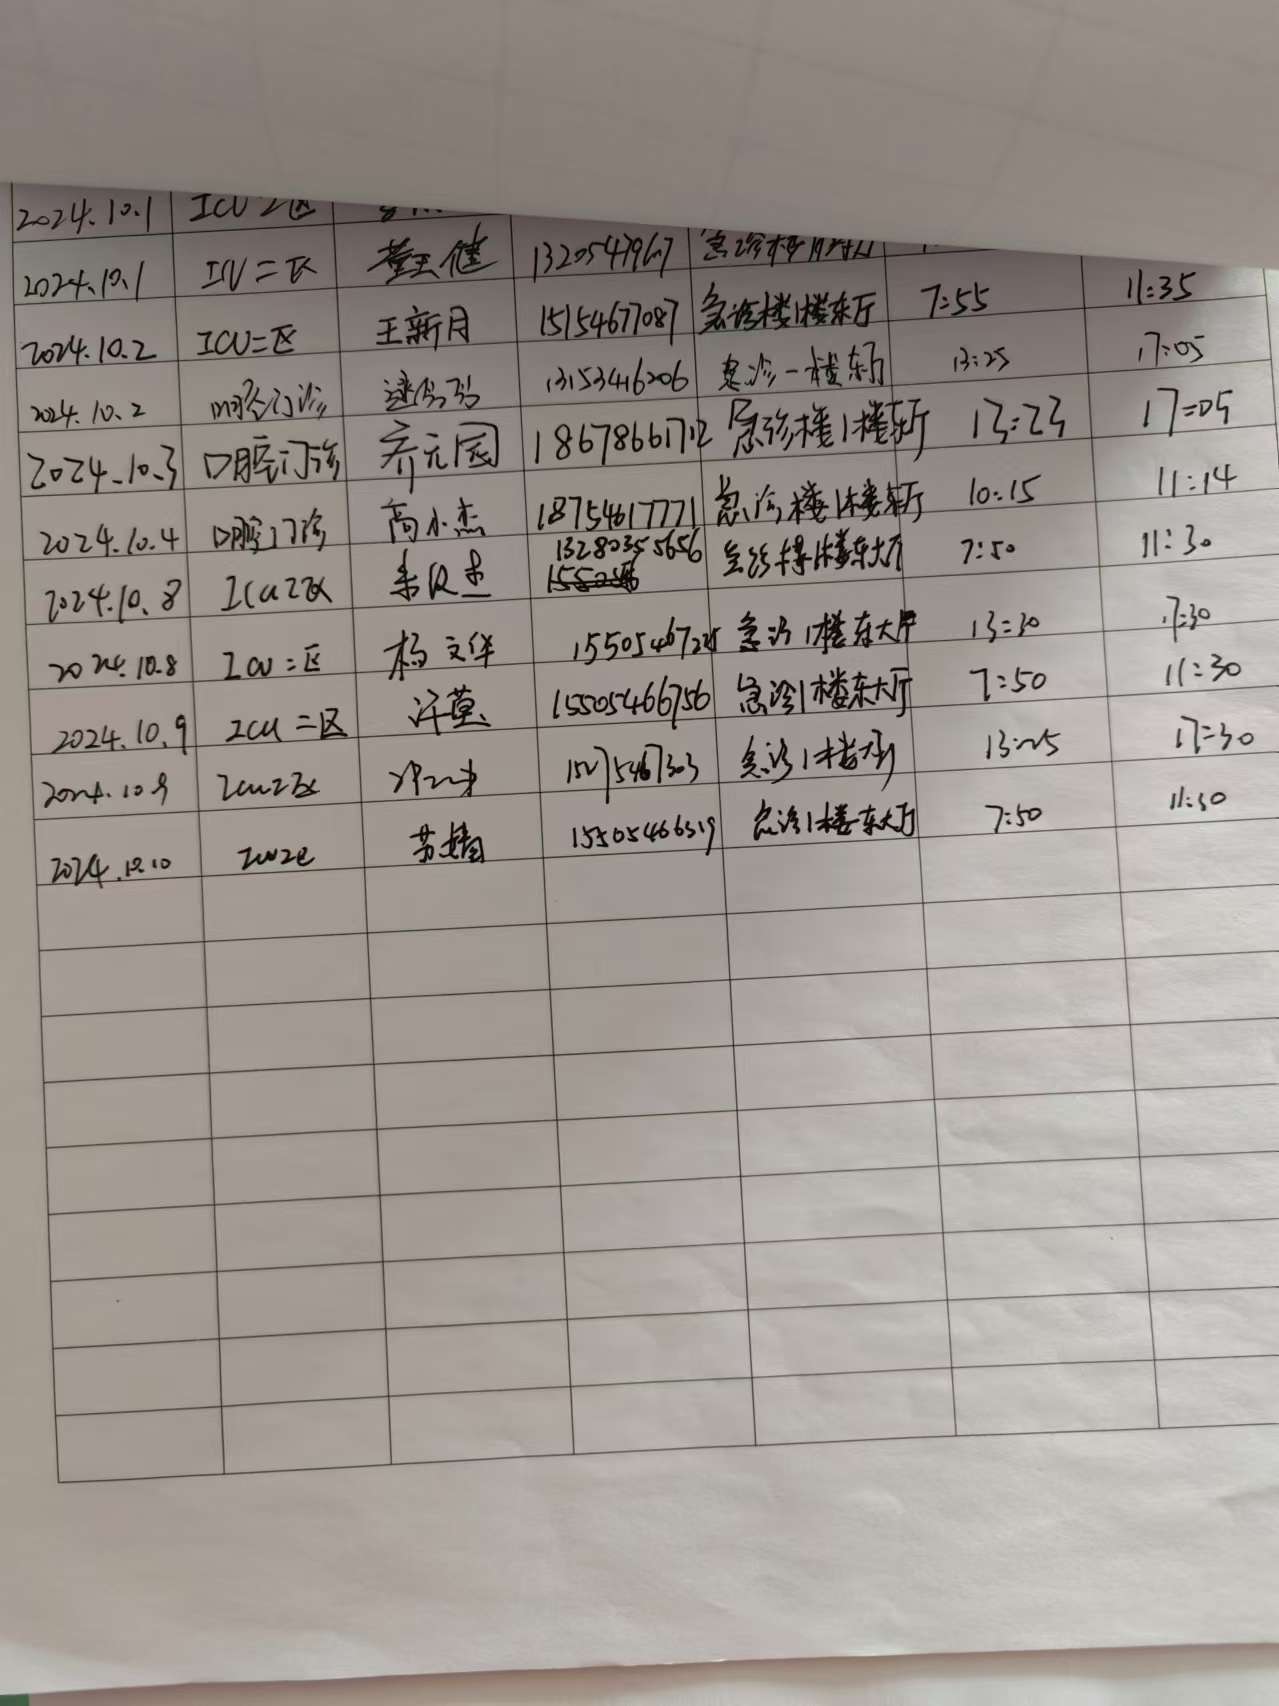 2024.10.1 ICU2区
2024.10.1 ICU二区 董玉健 1320547967
2024.10.2 ICU二区 王新月 15154677087 急诊楼1楼东厅 7:55 11:35
2024.10.2 口腔门诊 13153416206 急诊一楼东厅 13:25 17:05
2024.10.3 口腔门诊 乔元园 18678661712 急诊楼1楼东厅 13:23 17:05
2024.10.4 口腔门诊 高小杰 18754617771 急诊楼1楼东厅 10:15 11:14
2024.10.8 ICU2区 13280355656 急诊楼1楼东大厅 7:50 11:30
2024.10.8 ICU二区 杨文华 急诊1楼东大厅 13:30 17:30
2024.10.9 ICU二区 许萱 15505466756 急诊1楼东大厅 7:50 11:30
2024.10.9 ICU2区 15275467303 急诊1楼 13:25 17:30
2024.10.10 ICU2区 苏婧 15505466319 急诊1楼东大厅 7:50 11:30